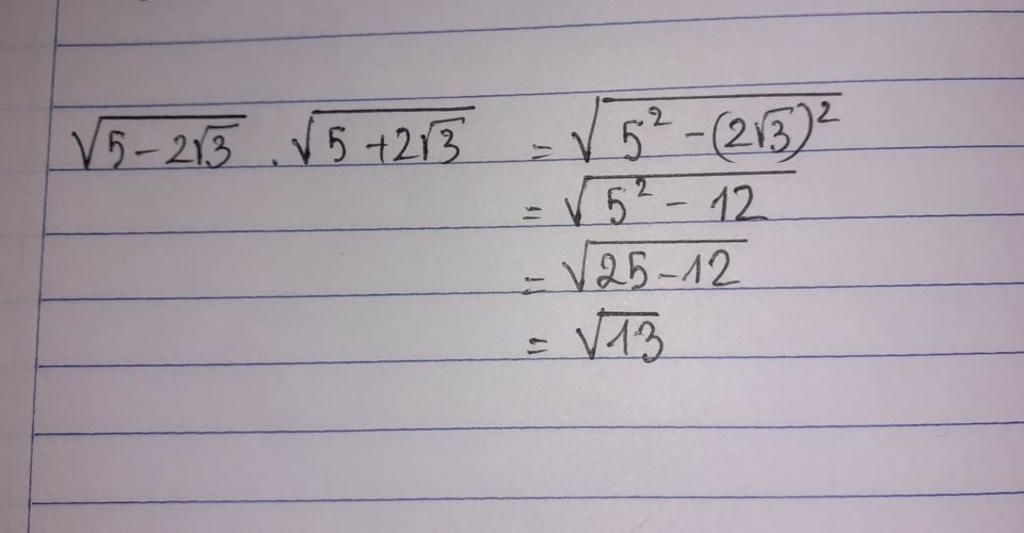 √(5-2√3) . √(5+2√3) = √(5² - (2√3)²)
= √(5² - 12)
= √(25-12)
= √13